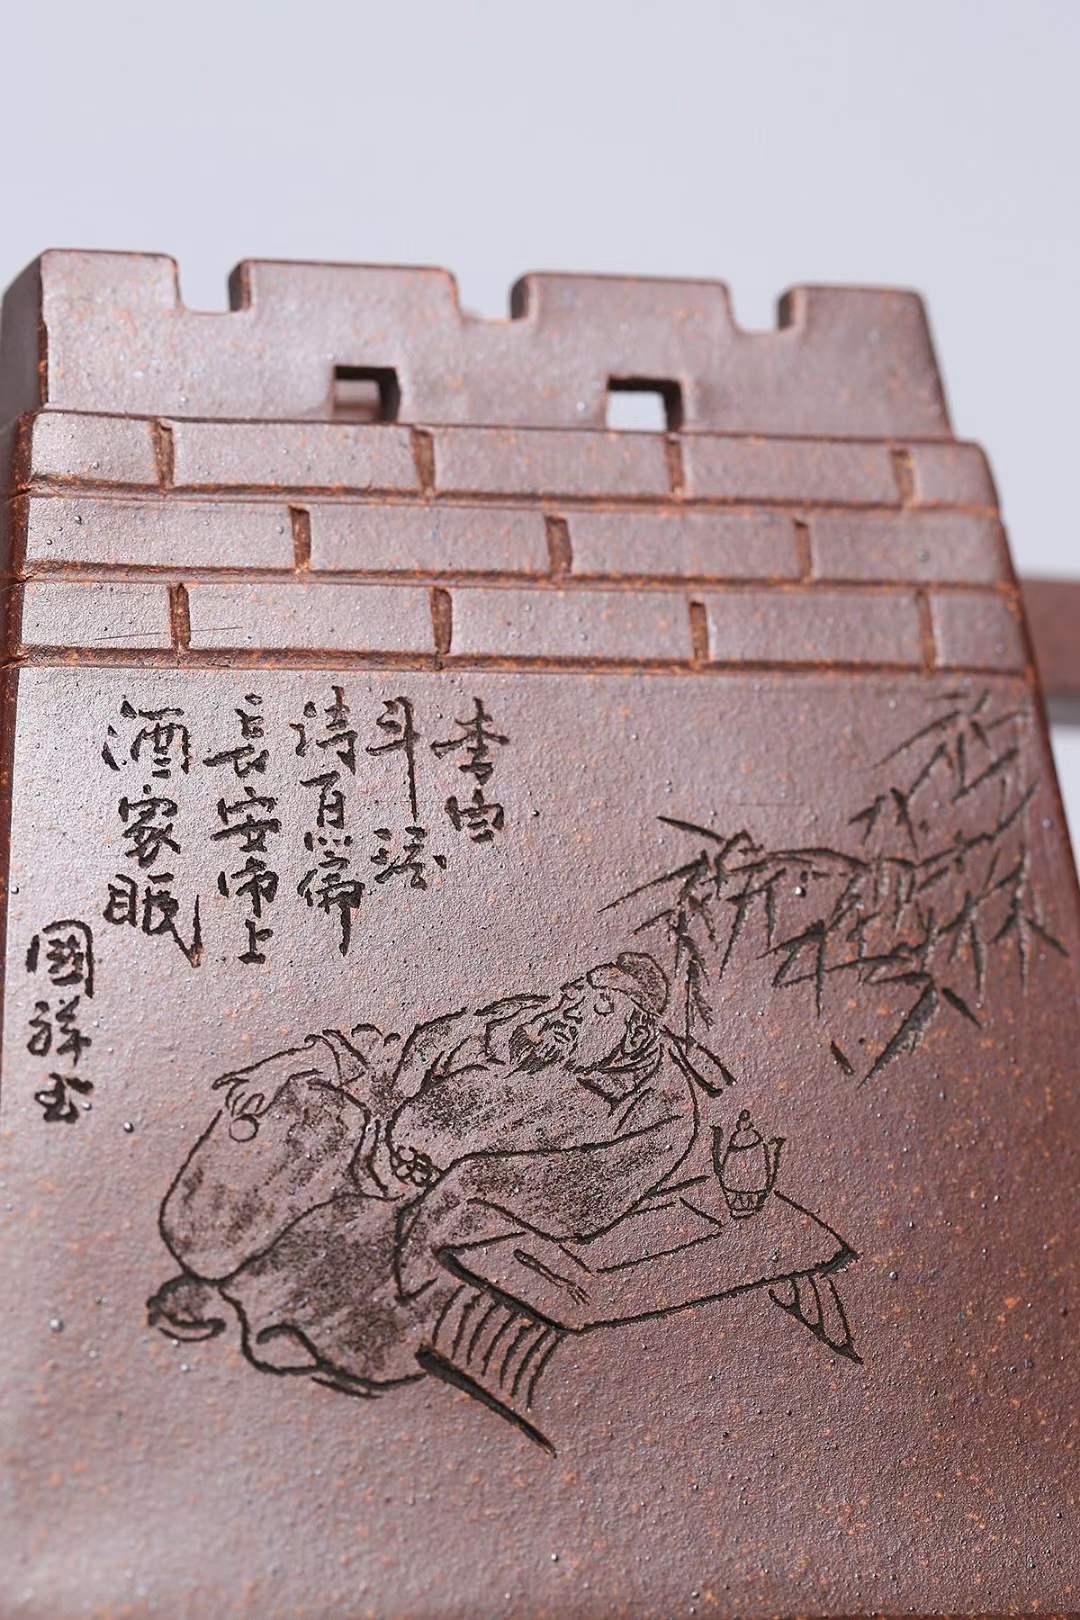 李白
斗酒
诗百篇
長安市上
酒家眠
國祥书